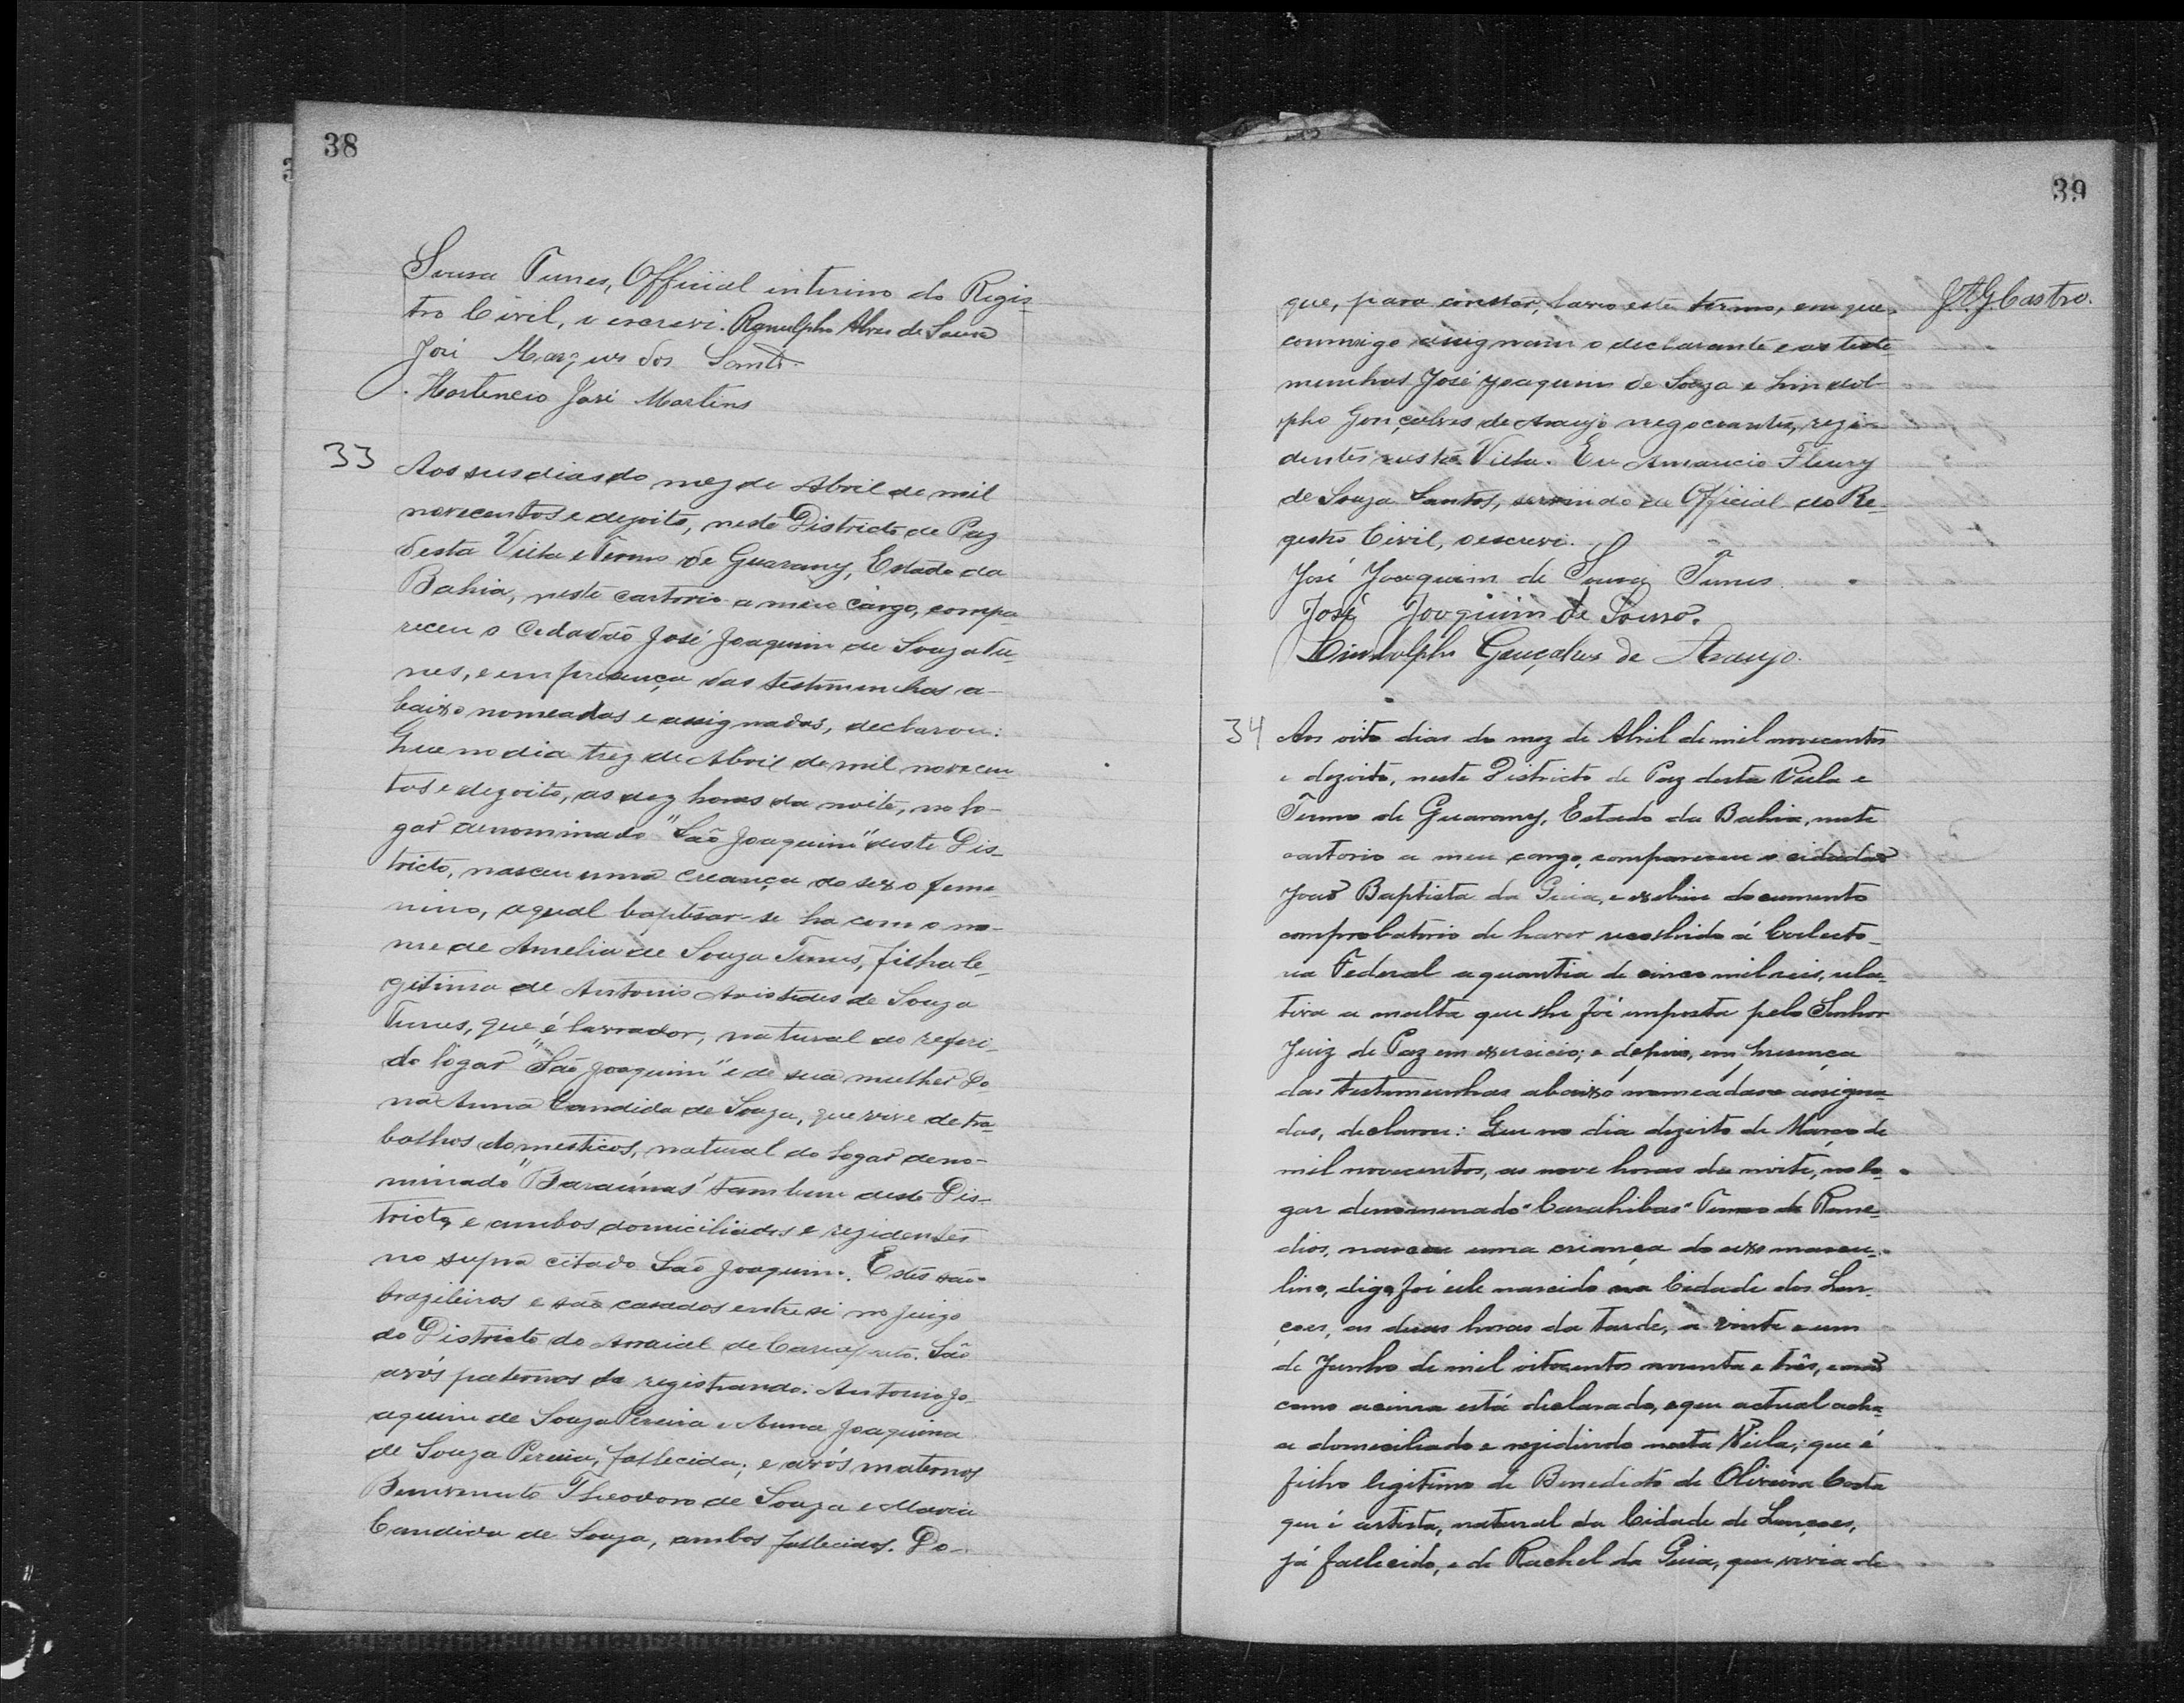 38
Sousa Tunes, Official interino do Regis-
tro Civil, o escrevi. Ranulpho Alves de Souza
José Marques dos Santos
Hortencio José Martins
33
Aos seis dias do mez de Abril de mil
novecentos e dezoito, neste Districto de Paz
desta Villa e Termo de Guarany, Estado da
Bahia, neste cartorio a meu cargo, compa-
receu o Cidadão José Joaquim de Souza Tu-
nes, e em presença das testemunhas a-
baixo nomeadas e assignadas, declarou:
Que no dia trez de Abril de mil novecen-
tos e dezoito, as dez horas da noite, no lo-
gar denominado "São Joaquim" deste Dis-
tricto, nasceu uma creança do sexo femi-
nino, a qual baptisar-se ha com o no-
me de Amelia de Souza Tunes, filha le-
gitima de Antonio Aristides de Souza
Tunes, que é lavrador, natural do referi-
do logar "São Joaquim" e de sua mulher Do-
na Anna Candida de Souza, que vive de tra-
balhos domesticos, natural do logar deno-
minado "Baraúnas" tambem deste Dis-
tricto, e ambos domiciliados e rezidentes
no supra citado São Joaquim. Estes são
brazileiros e são casados entre si no juizo
do Districto do Arraial de São
avós paternos da registrando: Antonio Jo-
aquim de Souza Pereira e Anna Joaquina
de Souza Pereira, fallecida; e avós maternos
Benvenuto Theodoro de Souza e Maria
Candida de Souza, ambos fallecidos. Do-
39
J.A.G. Castro.
que, para constar, lavro este termo, em que
commigo assignam o declarante e as teste-
munhas José Joaquim de Souza e Lindol-
pho Gonçalves de Araujo negociantes, rezi-
dentes nesta Villa. Eu Amancio Fleury
de Souza Santos, servindo de Official do Re-
gistro Civil, o escrevi.
José Joaquim de Souza Tunes
José Joaquim de Souza.
Lindolpho Gonçalves de Araujo.
34
Aos oito dias do mez de Abril de mil novecentos
e dezoito, neste Districto de Paz desta Villa e
Termo de Guarany, Estado da Bahia, neste
cartorio a meu cargo, compareceu o cidadão
João Baptista da Guia, e exhibiu documento
comprobatorio de haver recolhido á Collecto-
ria Federal a quantia de cinco mil reis, rela-
tiva a multa que lhe foi imposta pelo Senhor
Juiz de Paz em exercicio; e depois, em presença
das testemunhas abaixo nomeadas e assigna-
das, declarou: Que no dia dezoito de Março de
mil novecentos, as nove horas da noite, no lo-
gar denominado "Carahibas" Termo de Reme-
dios, nasceu uma criança do sexo mascu-
lino, digo, foi elle nascido na Cidade dos Len-
çoes, as duas horas da tarde, a vinte e um
de Junho de mil oitocentos noventa e três, e não
como acima está declarado, e que actual acha-
se domiciliado e rezidindo nesta Villa; que é
filho legitimo de Benedicto de Oliveira Costa
que é artista, natural da Cidade de Lençoes,
já fallecido, e de Rachel da Guia, que vivia de